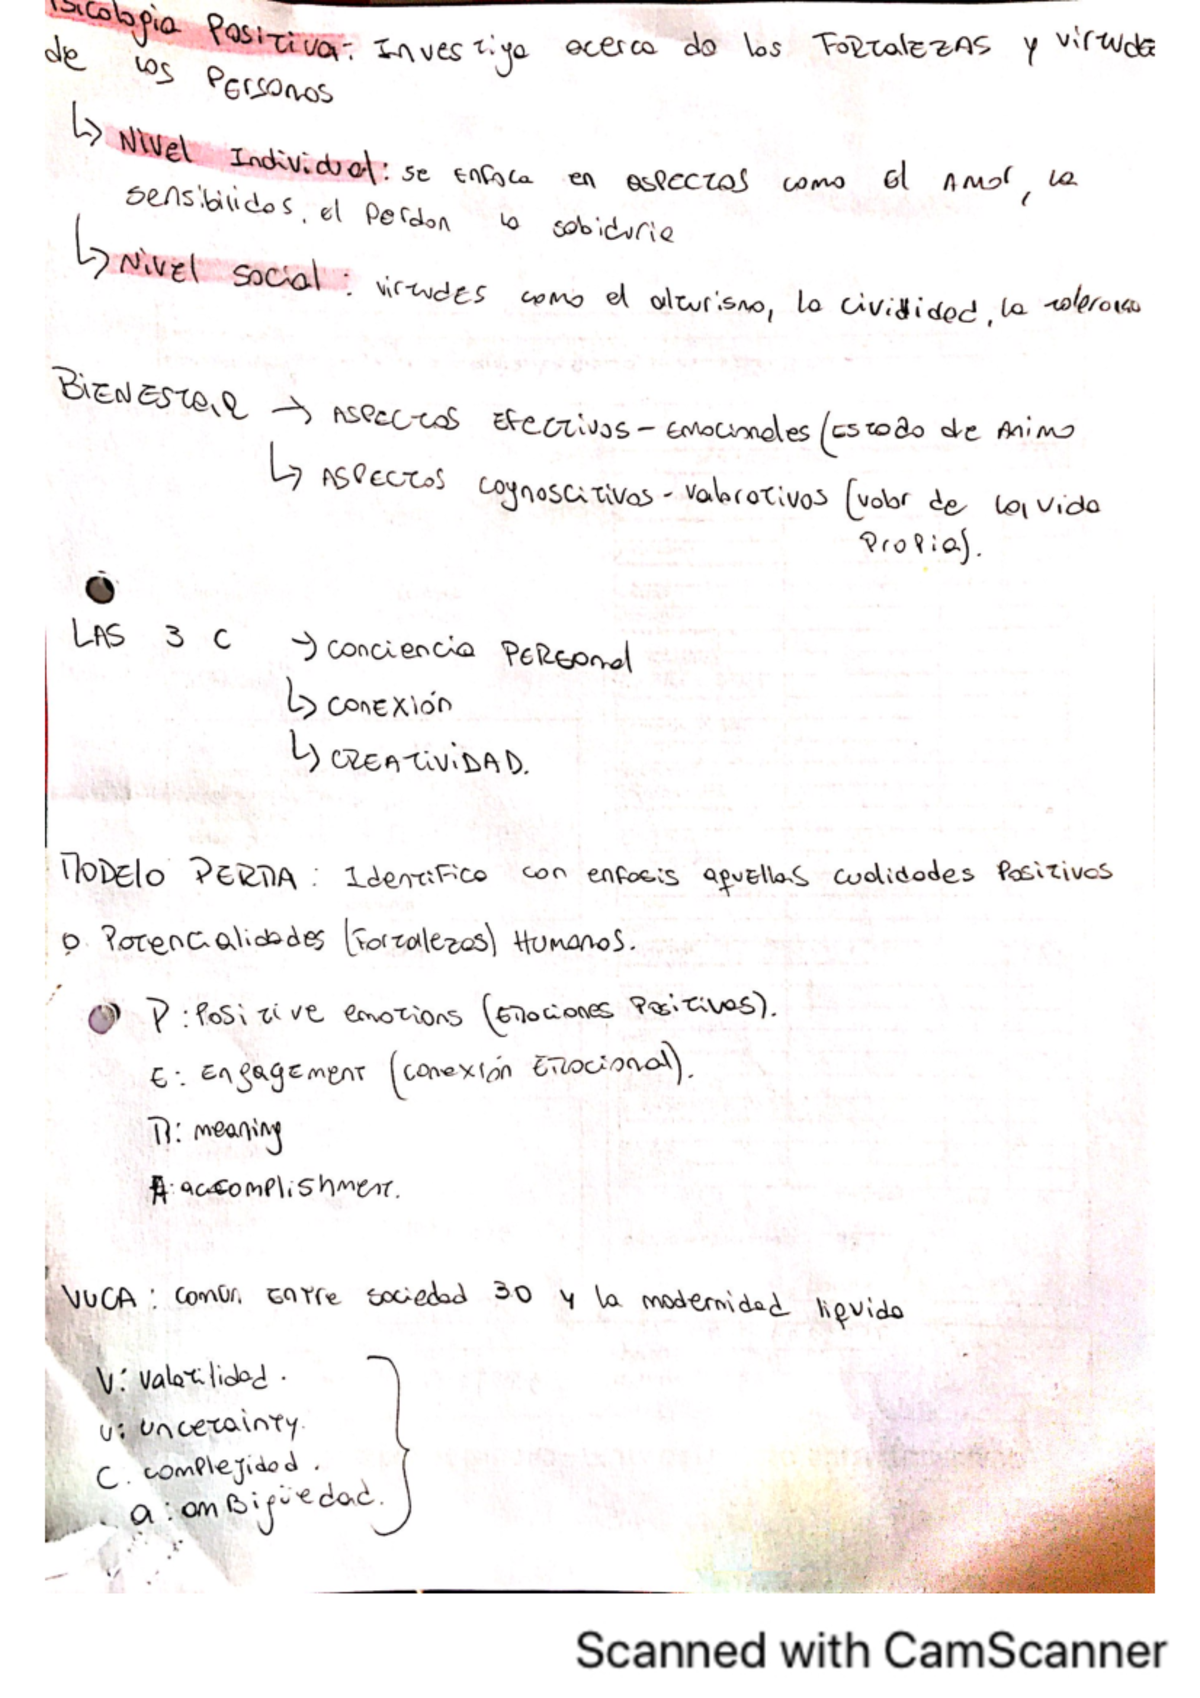 Psicologia Positiva: Investiga acerca de las Fortalezas y virtudes
de las Personas
↳ Nivel Individual: se enfoca en aspectos como el Amor, la
sensibilidas, el Perdon la sabiduria
↳ Nivel social: virtudes como el alturismo, la cividided, la tolerancia
BIENESTAR → Aspectos Efectivos - Emocionales (Estado de Animo
↳ Aspectos cognoscitivos - valorativos (valor de la vida
Propia).
LAS 3 C → conciencia PERSonal
↳ conExión
↳ CREATiViDAD.
Modelo PERMA: Identifica con enfasis aquellas cualidades Positivas
o Potencialidades (Fortalezas) Humanas.
P: Positive emotions (Emociones Positivas).
E: Engagement (conexión Emocional).
M: meaning
A: accomplishment.
VUCA: común entre sociedad 3.0 y la modernidad liquida
V: Volatilidad.
u: uncertainty.
C. complejidad.
a: amBigüedad.
Scanned with CamScanner